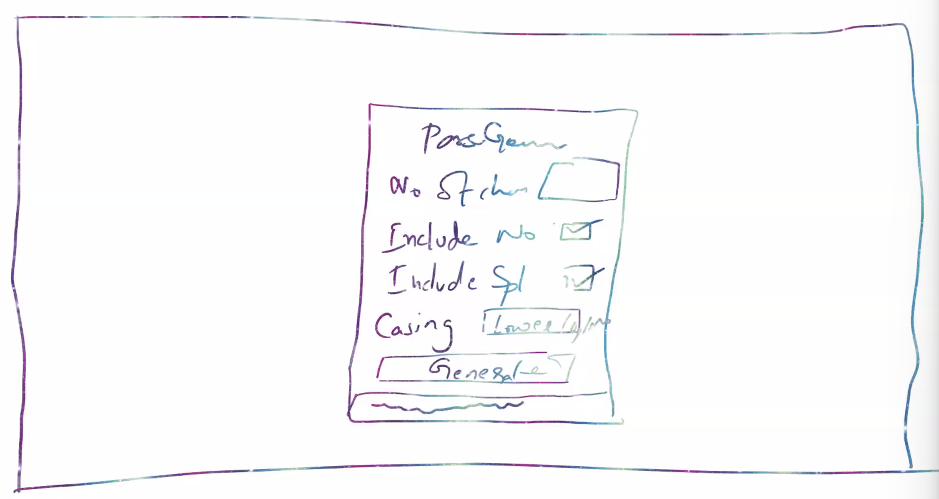 PassGen
No of char
Include No
Include Spl
Casing Lower/
Generate